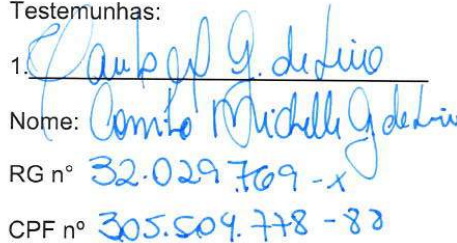 Testemunhas:
1. G. de Lira
Nome: Camila Michelle G de Lira
RG n° 32.029.769-x
CPF nº 305.509.778-88